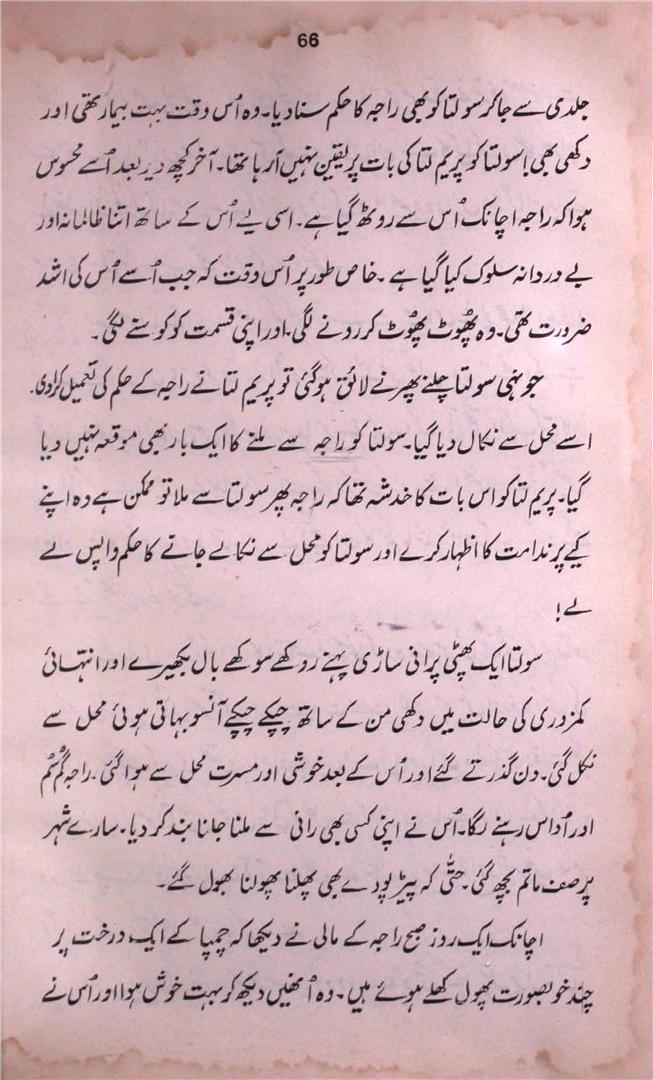 66
جلدی سے جا کر سولتا کو بھی راجہ کا حکم سنا دیا۔ وہ اُس وقت بہت بیمار تھی اور
دکھی بھی! سولتا کو پریم لتا کی بات پر یقین نہیں آ رہا تھا۔ آخر کچھ دیر بعد اُسے محسوس
ہوا کہ راجہ اچانک اُس سے روٹھ گیا ہے۔ اسی لیے اُس کے ساتھ اتنا ظالمانہ اور
بے دردانہ سلوک کیا گیا ہے۔ خاص طور پر اُس وقت کہ جب اُسے اُس کی اشد
ضرورت تھی۔ وہ پھُوٹ پھُوٹ کر رونے لگی۔ اور اپنی قسمت کو کوسنے لگی۔
جونہی سولتا چلنے پھرنے لائق ہو گئی تو پریم لتا نے راجہ کے حکم کی تعمیل کرا دی۔
اسے محل سے نکال دیا گیا۔ سولتا کو راجہ سے ملنے کا ایک بار بھی موقعہ نہیں دیا
گیا۔ پریم لتا کو اس بات کا خدشہ تھا کہ راجہ پھر سولتا سے ملا تو ممکن ہے وہ اپنے
کیے پر ندامت کا اظہار کرے اور سولتا کو محل سے نکالے جانے کا حکم واپس لے
لے!
سولتا ایک پھٹی پرانی ساڑی پہنے روکھے سوکھے بال بکھیرے اور انتہائی
کمزوری کی حالت میں دکھی من کے ساتھ چپکے چپکے آنسو بہاتی ہوئی محل سے
نکل گئی۔ دن گذرتے گئے اور اُس کے بعد خوشی اور مسرت محل سے ہوا گئی۔ راجہ گُم سُم
اور اُداس رہنے لگا۔ اُس نے اپنی کسی بھی رانی سے ملنا جانا بند کر دیا۔ سارے شہر
پر صف ماتم بچھ گئی۔ حتّٰی کہ پیڑ پودے بھی پھلنا پھولنا بھول گئے۔
اچانک ایک روز صبح راجہ کے مالی نے دیکھا کہ چمپا کے ایک درخت پر
چند خوبصورت پھول کھلے ہوئے ہیں۔ وہ اُنھیں دیکھ کر بہت خوش ہوا اور اُس نے